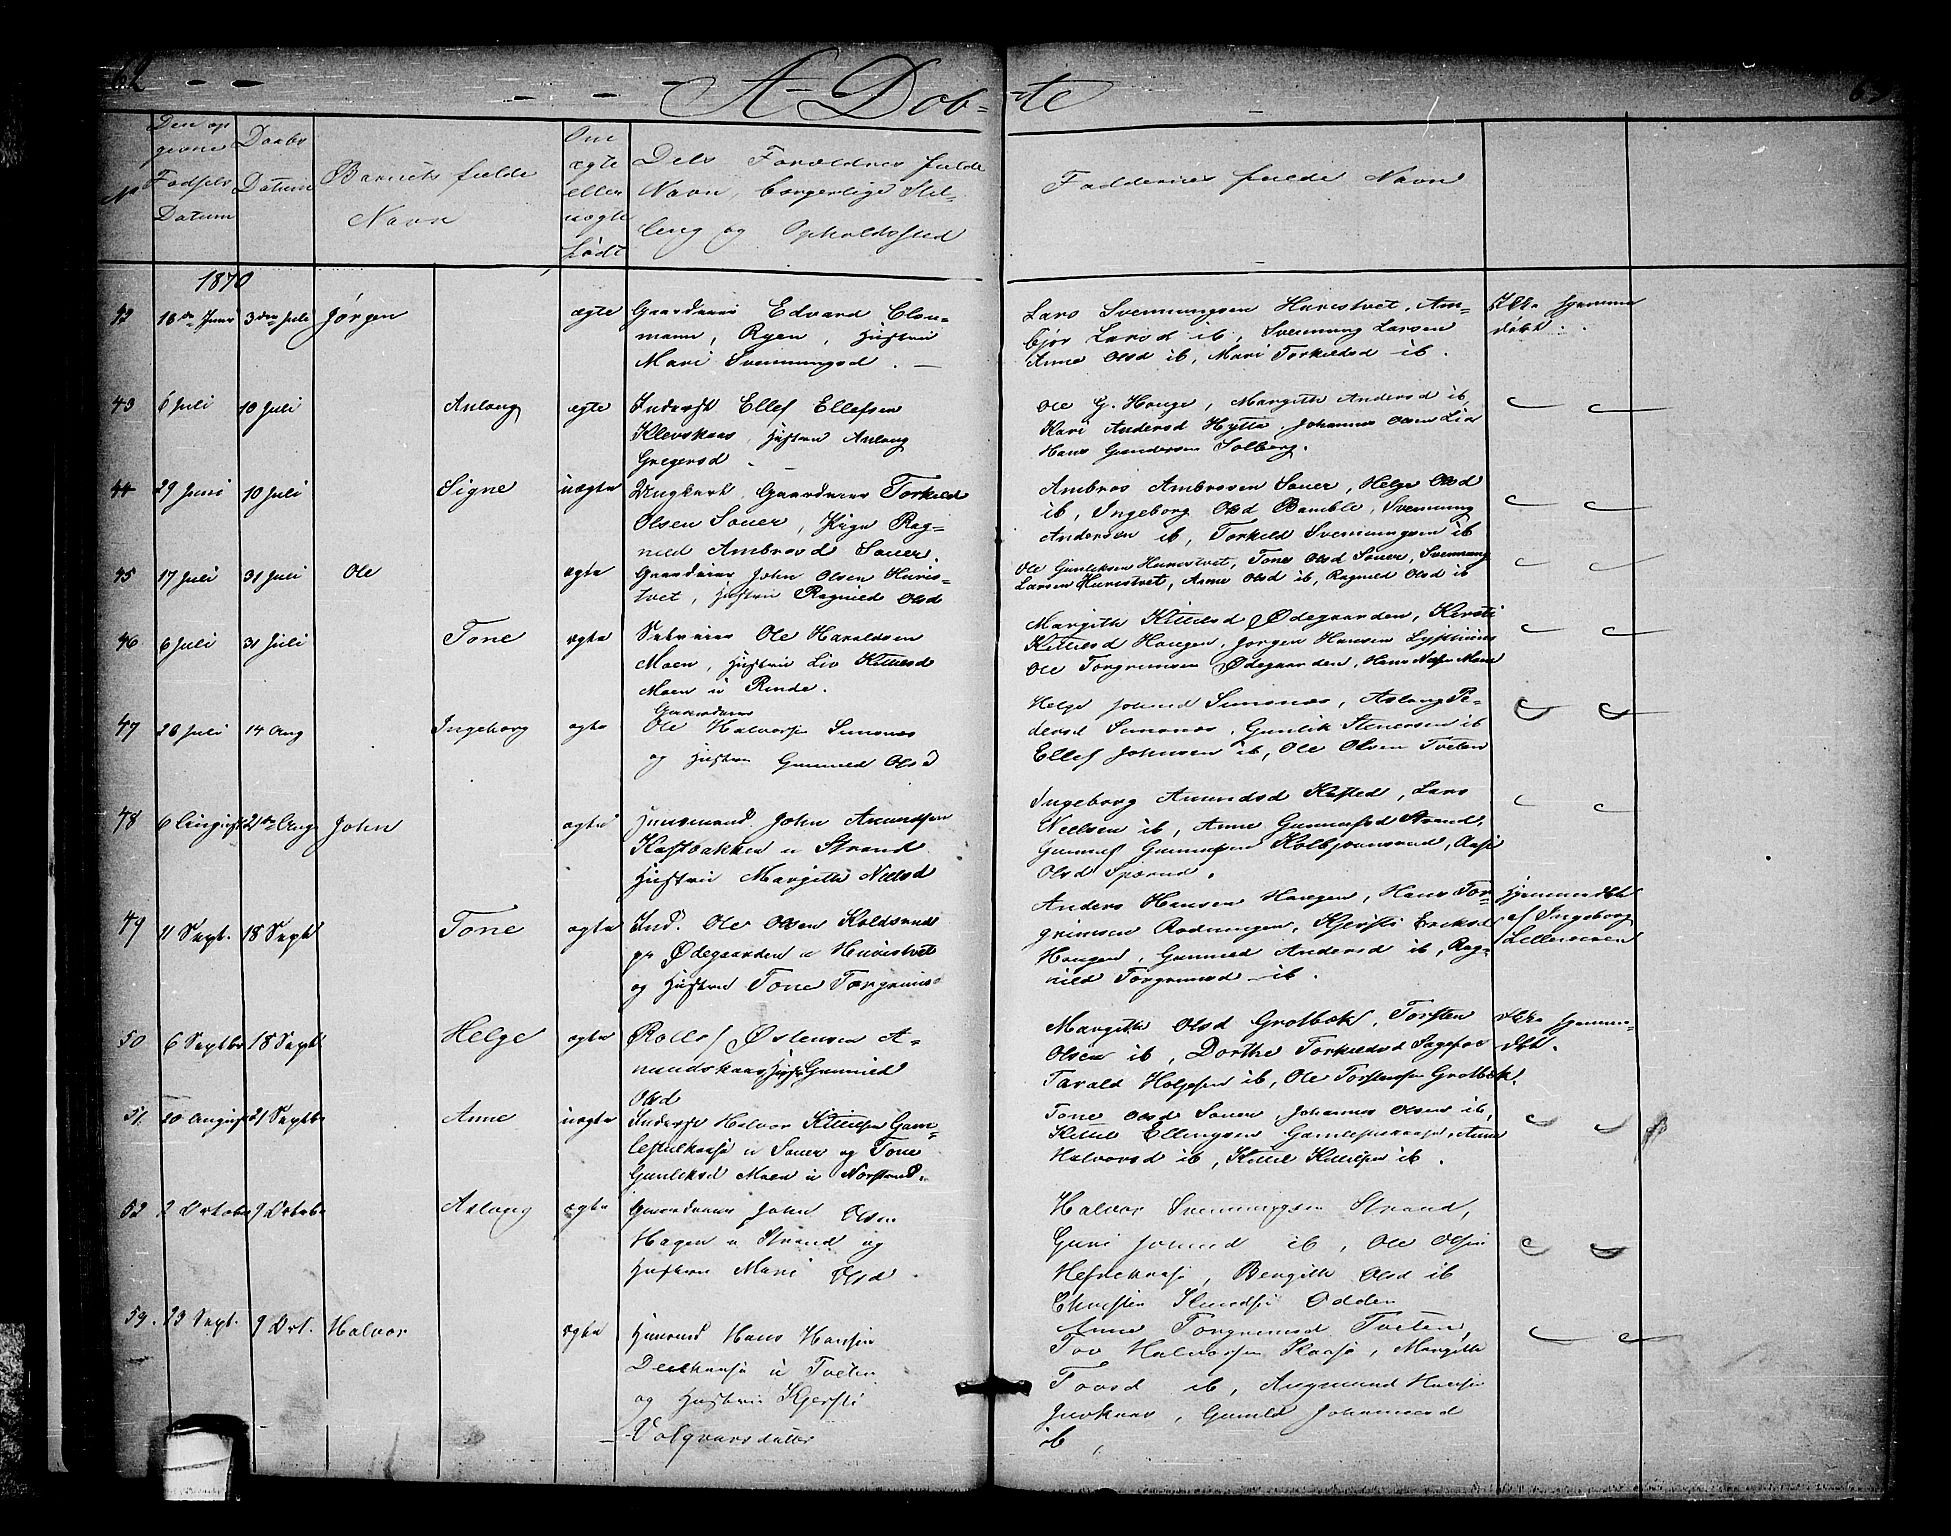 62
A-Dob-te
63
No
Den op
givne
Fødsels
Datum
Daabs
Datum
Barnets fulde
Navn
Om
ægte
eller
uægte
født
Dets Forældres fulde
Navn, borgerlige Stil-
ling og Opholdssted
Faddernes fulde Navn
1870
42 3die Juli Jørgen ægte Gaardeier Edvard
mann, Ryen, Hustru
Mari Svenningsd.
Lars Svenningsen Hurestvet, Am-
bjør Larsd ib, Svennung Larsen
Anne Olsd ib, Mari Torkildsd ib.
Ikke hjemme
døbt.
43 6 Juli 10 Juli Aslaug ægte Inderst Ellef Ellefsen
Klevkaas, Hustru Aslaug
Gregersd
Ole G. Hauge, Margith Andersd ib,
Kari Andersd Hytta, Johannes Olsen Lia
Hans Gundersen Solberg.
44 29 Juni 10 Juli Signe uægte Ungkarl, Gaardeier Torkild
Olsen Sauer, Pige Rag-
nild Ambrosd Sauer.
Ambros Ambrosen Sauer, Helge Olsd
ib, Ingeborg Olsd Bamble, Svennung
Andersen ib, Torkild Svenningsen ib
45 17 Juli 31 Juli Ole ægte Gaardeier John Olsen Hures-
tvet, Hustru Ragnild Olsd
Ole Gunliksen Hurestvet, Tone Olsd Sauer, Svennung
Larsen Hurestvet, Anne Olsd ib, Ragnild Olsd ib
46 6 Juli 31 Juli Tone ægte Selveier Ole Haraldsen
Moen, Hustru Liv Kittilsd
Moen u Rinde.
Margith Kittilsd Ødegaarden, Kirsti
Kittilsd Haugen, Jørgen Hansen
Ole Torgrimsen Ødegaarden, Hans
47 26 Juli 14 Aug Ingeborg ægte Gaardeier
Ole Halvorsen Sunsnæs
og Hustru Gunnild Olsd
Helge Johnsd Sunsnæs, Aslaug Pe-
dersd Sunsnæs, Gunlik Stenersen ib
Ellef Johnsen ib, Ole Olsen Tveten
48 6 August 21de Aug John ægte Husmand John Amundsen
Kastbakken u Strand
Hustru Margith Nielsd
Ingeborg Amundsd Kasted, Lars
Nielsen ib, Anne Gunnufsd Strand,
Gunnuf Gunnufsen Kolbjørnsrud, Aase
Olsd
49 11 Sept. 18 Sept Tone ægte Ind. Ole Olsen Koldsrud
Ødegaarden u Hurestvet
og Hustru Tone Torgrims-
Anders Hansen Haugen, Hans Tor-
grimsen Rodningen, Kjersti Eriksd
Haugen, Gunnild Andersd ib, Rag-
nild Torgrimsd ib.
Hjemmedøbt
af Ingeborg
Lillemoen
50 6 Septbr 18 Sept Helge ægte Rollef Østensen A-
mundskaas Hust Gunnild
Olsd
Margith Olsd Grotbæk, Torsten
Olsen ib, Dorthe Torkildsd Sagefos
Tarald Helgesen ib, Ole Torstensen Grotbæk.
Ikke hjemme-
døbt.
51. 20 August 21 Septbr Anne uægte Inderst Halvor Kittilsen Gam-
u Sauer og Tone
Gunliksd Moen u Norstrud.
Tone Olsd Sauer, Johannes Olsen ib,
Kittil Ellingsen Anne
Halvorsd ib, Kittil Kittilsen ib.
52 2 Octobr 9 Octobr Aslaug ægte Gaardeier John Olsen
Hagen u Strand og
Hustru Mari Olsd.
Halvor Svenningsen Strand,
Guri Johnsd ib, Ole Olsen
Bergith Olsd ib
Christen Knudsen Odden
53. 23 Sept. 9 Oct. Halvor ægte Husmd Hans Hansen
u Tveten
og Hustru Kjersti
Valgvarsdatter
Anne Torgrimsd Tveten,
Tov Halvorsen Kaasa, Margith
Tovsd ib, Hansen
Gunild Johannesd
ib,